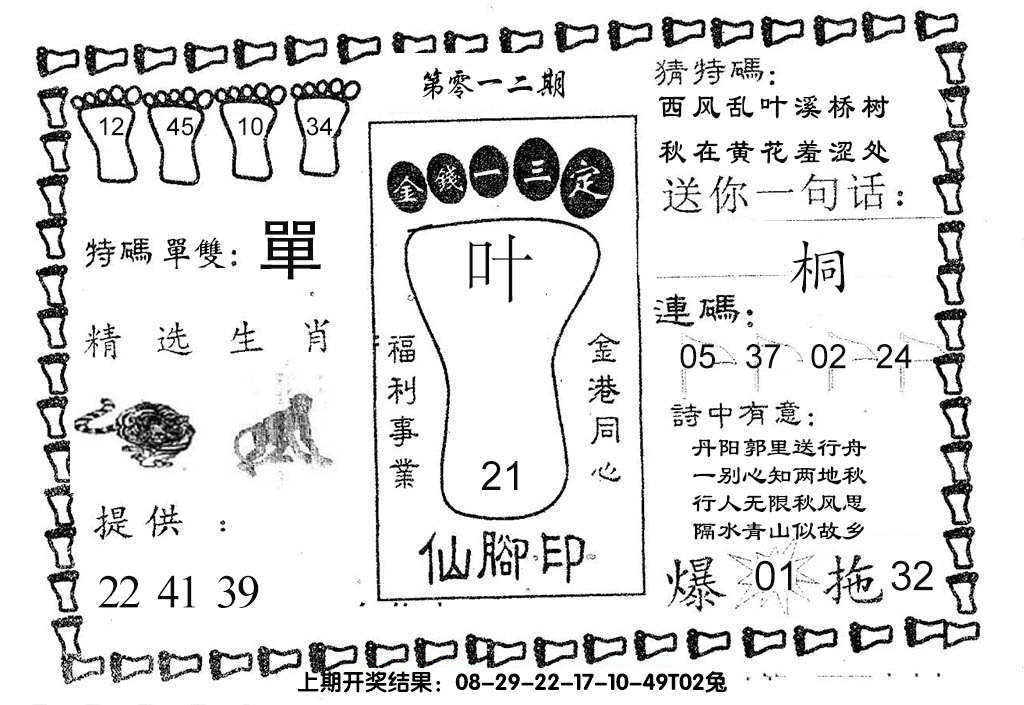 第零一二期
12 45 10 34
特碼單雙：單
精选生肖
提供：
22 41 39
金錢一三定
叶
21
福利事業
金港同心
仙腳印
猜特碼：
西风乱叶溪桥树
秋在黄花羞涩处
送你一句话：
桐
連碼：
05 37 02 24
詩中有意：
丹阳郭里送行舟
一别心知两地秋
行人无限秋风思
隔水青山似故乡
爆 01 拖 32
上期开奖结果：08-29-22-17-10-49T02兔